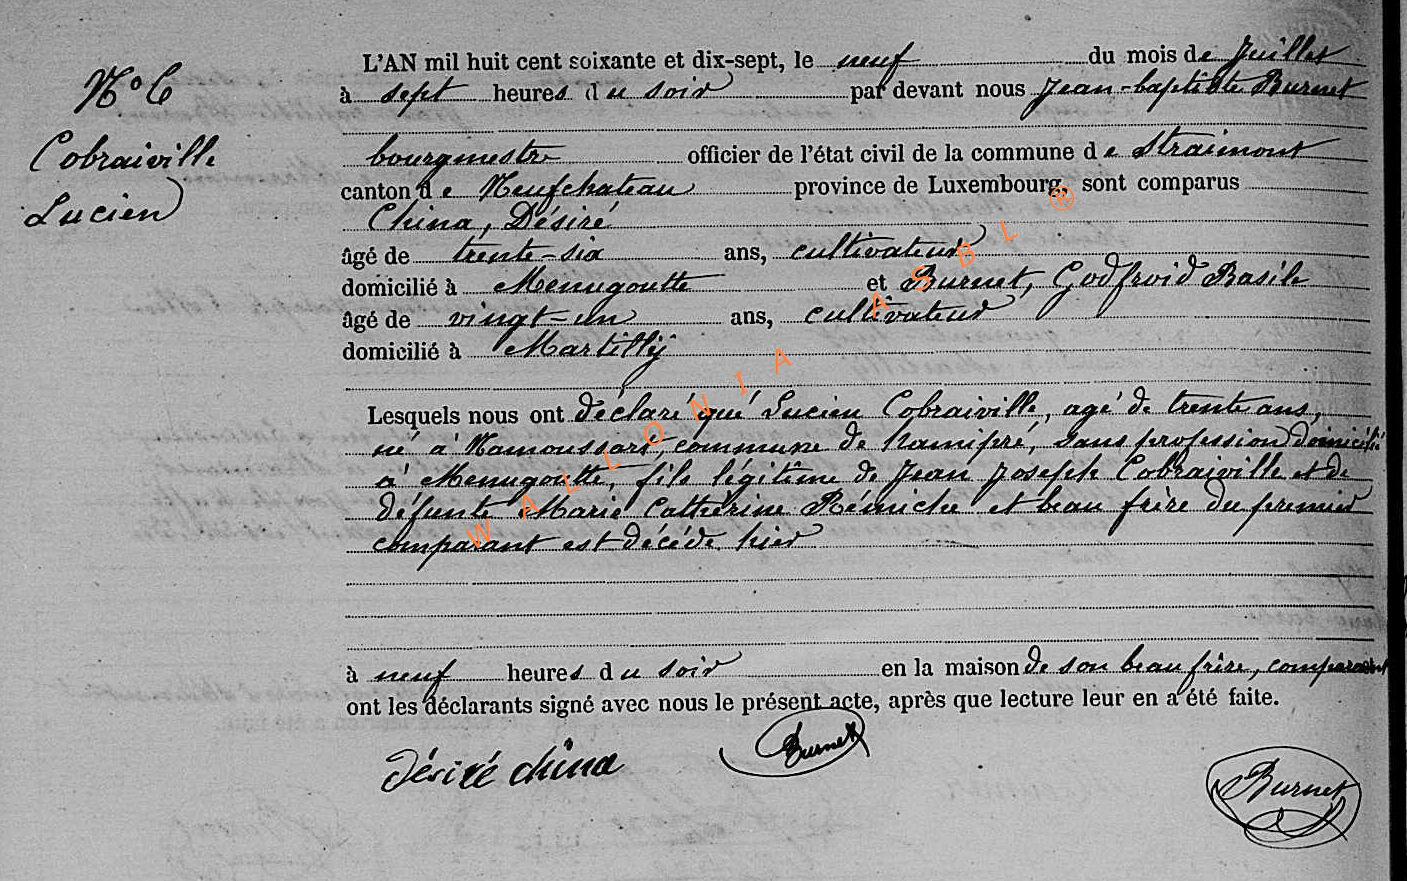 N° 6
Cobraiville
Lucien
L'AN mil huit cent soixante et dix-sept, le neuf du mois de Juillet
à sept heures du soir par devant nous Jean-baptiste Burnet
bourgmestre officier de l'état civil de la commune de Straimont
canton de Neufchateau province de Luxembourg, sont comparus
China, Désiré
âgé de trente-six ans, cultivateur
domicilié à Menugoutte et Burnet, Godfroid Basile
âgé de vingt-un ans, cultivateur
domicilié à Martilly
Lesquels nous ont déclaré que Lucien Cobraiville, agé de trente ans,
né à Namoussart, commune de hamipré, sans profession domicilié
à Menugoutte, fils légitime de Jean Joseph Cobraiville et de
défunte Marie Catherine Rémiche et beau frère du premier
comparant est décédé hier
à neuf heures du soir en la maison de son beau frère, comparant
ont les déclarants signé avec nous le présent acte, après que lecture leur en a été faite.
Désiré China
Burnet
Burnet
WALLONIA ASBL ®